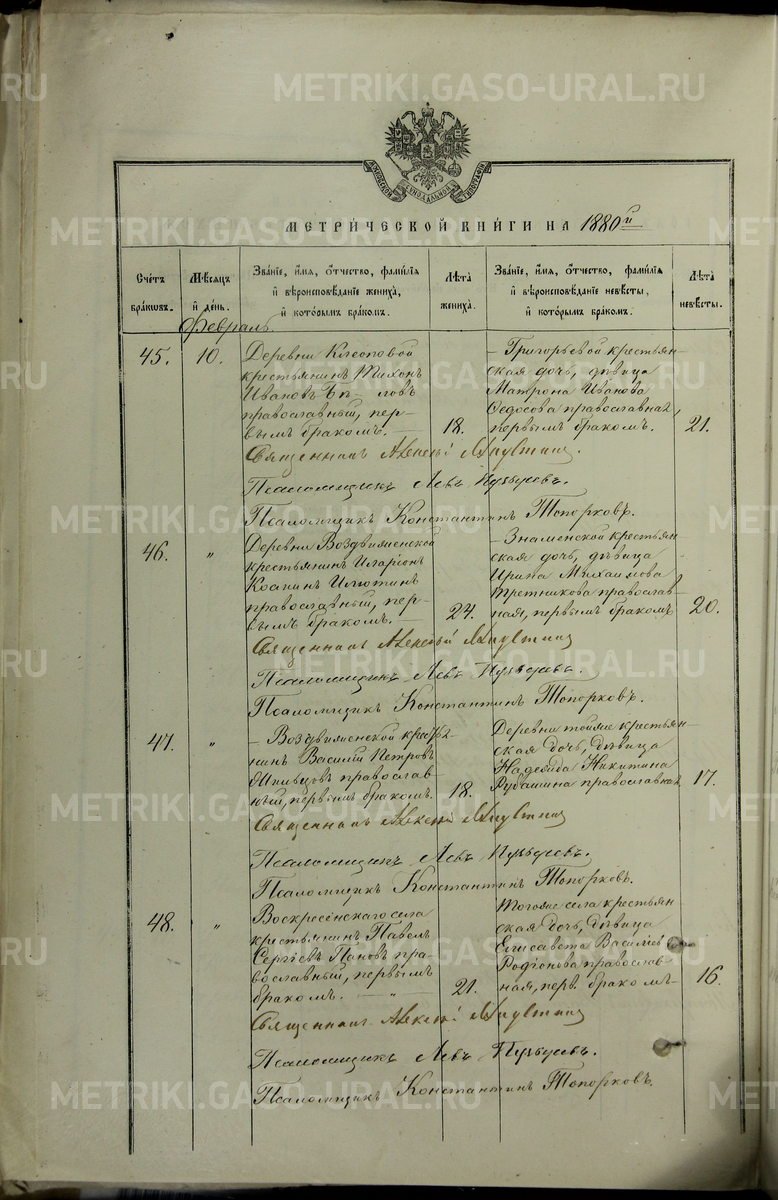 METRIKI.GASO-URAL.RU
МОСКОВСКОЙ СѴНОДАЛЬНОЙ ТИПОГРАФІИ
МЕТРИЧЕСКОЙ КНИГИ НА 1880й
Счетъ браковъ.
Мѣсяцъ и день.
Званіе, имя, отчество, фамилія и вѣроисповѣданіе жениха, и которымъ бракомъ.
Лѣта жениха.
Званіе, имя, отчество, фамилія и вѣроисповѣданіе невѣсты, и которымъ бракомъ.
Лѣта невѣсты.
Февраль.
45. 10.
Деревни Клеоповой
крестьянинъ Тихонъ
Ивановъ
православный, пер-
вымъ бракомъ. 18.
Григорьевой крестьян-
ская дочь, дѣвица
Матрона Иванова
Ѳедосова православная,
первымъ бракомъ. 21.
Священникъ Алексій
Псаломщикъ Левъ
Псаломщикъ Константинъ Топорковъ.
46. "
Деревни Воздвиженской
крестьянинъ Иларіонъ
православный, пер-
вымъ бракомъ. 24.
Знаменской крестьян-
ская дочь, дѣвица
Ирина Михаилова
Третникова православ-
ная, первымъ бракомъ 20.
Священникъ Алексій
Псаломщикъ Левъ
Псаломщикъ Константинъ Топорковъ.
47. "
Воздвиженской кресть-
нинъ Василій Петровъ
православ-
ный, первымъ бракомъ. 18.
Деревни тойже крестьян-
ская дочь, дѣвица
Надежда Никитина
Рубашина православная 17.
Священникъ Алексій
Псаломщикъ Левъ
Псаломщикъ Константинъ Топорковъ.
48. "
Воскресенскаго села
крестьянинъ Павелъ
Сергіевъ Пановъ пра-
вославный, первымъ
бракомъ. 21.
Тогоже села крестьян-
ская дочь, дѣвица
Елисавета
Родіонова православ-
ная, перв. бракомъ 16.
Священникъ Алексій
Псаломщикъ Левъ
Псаломщикъ Константинъ Топорковъ.